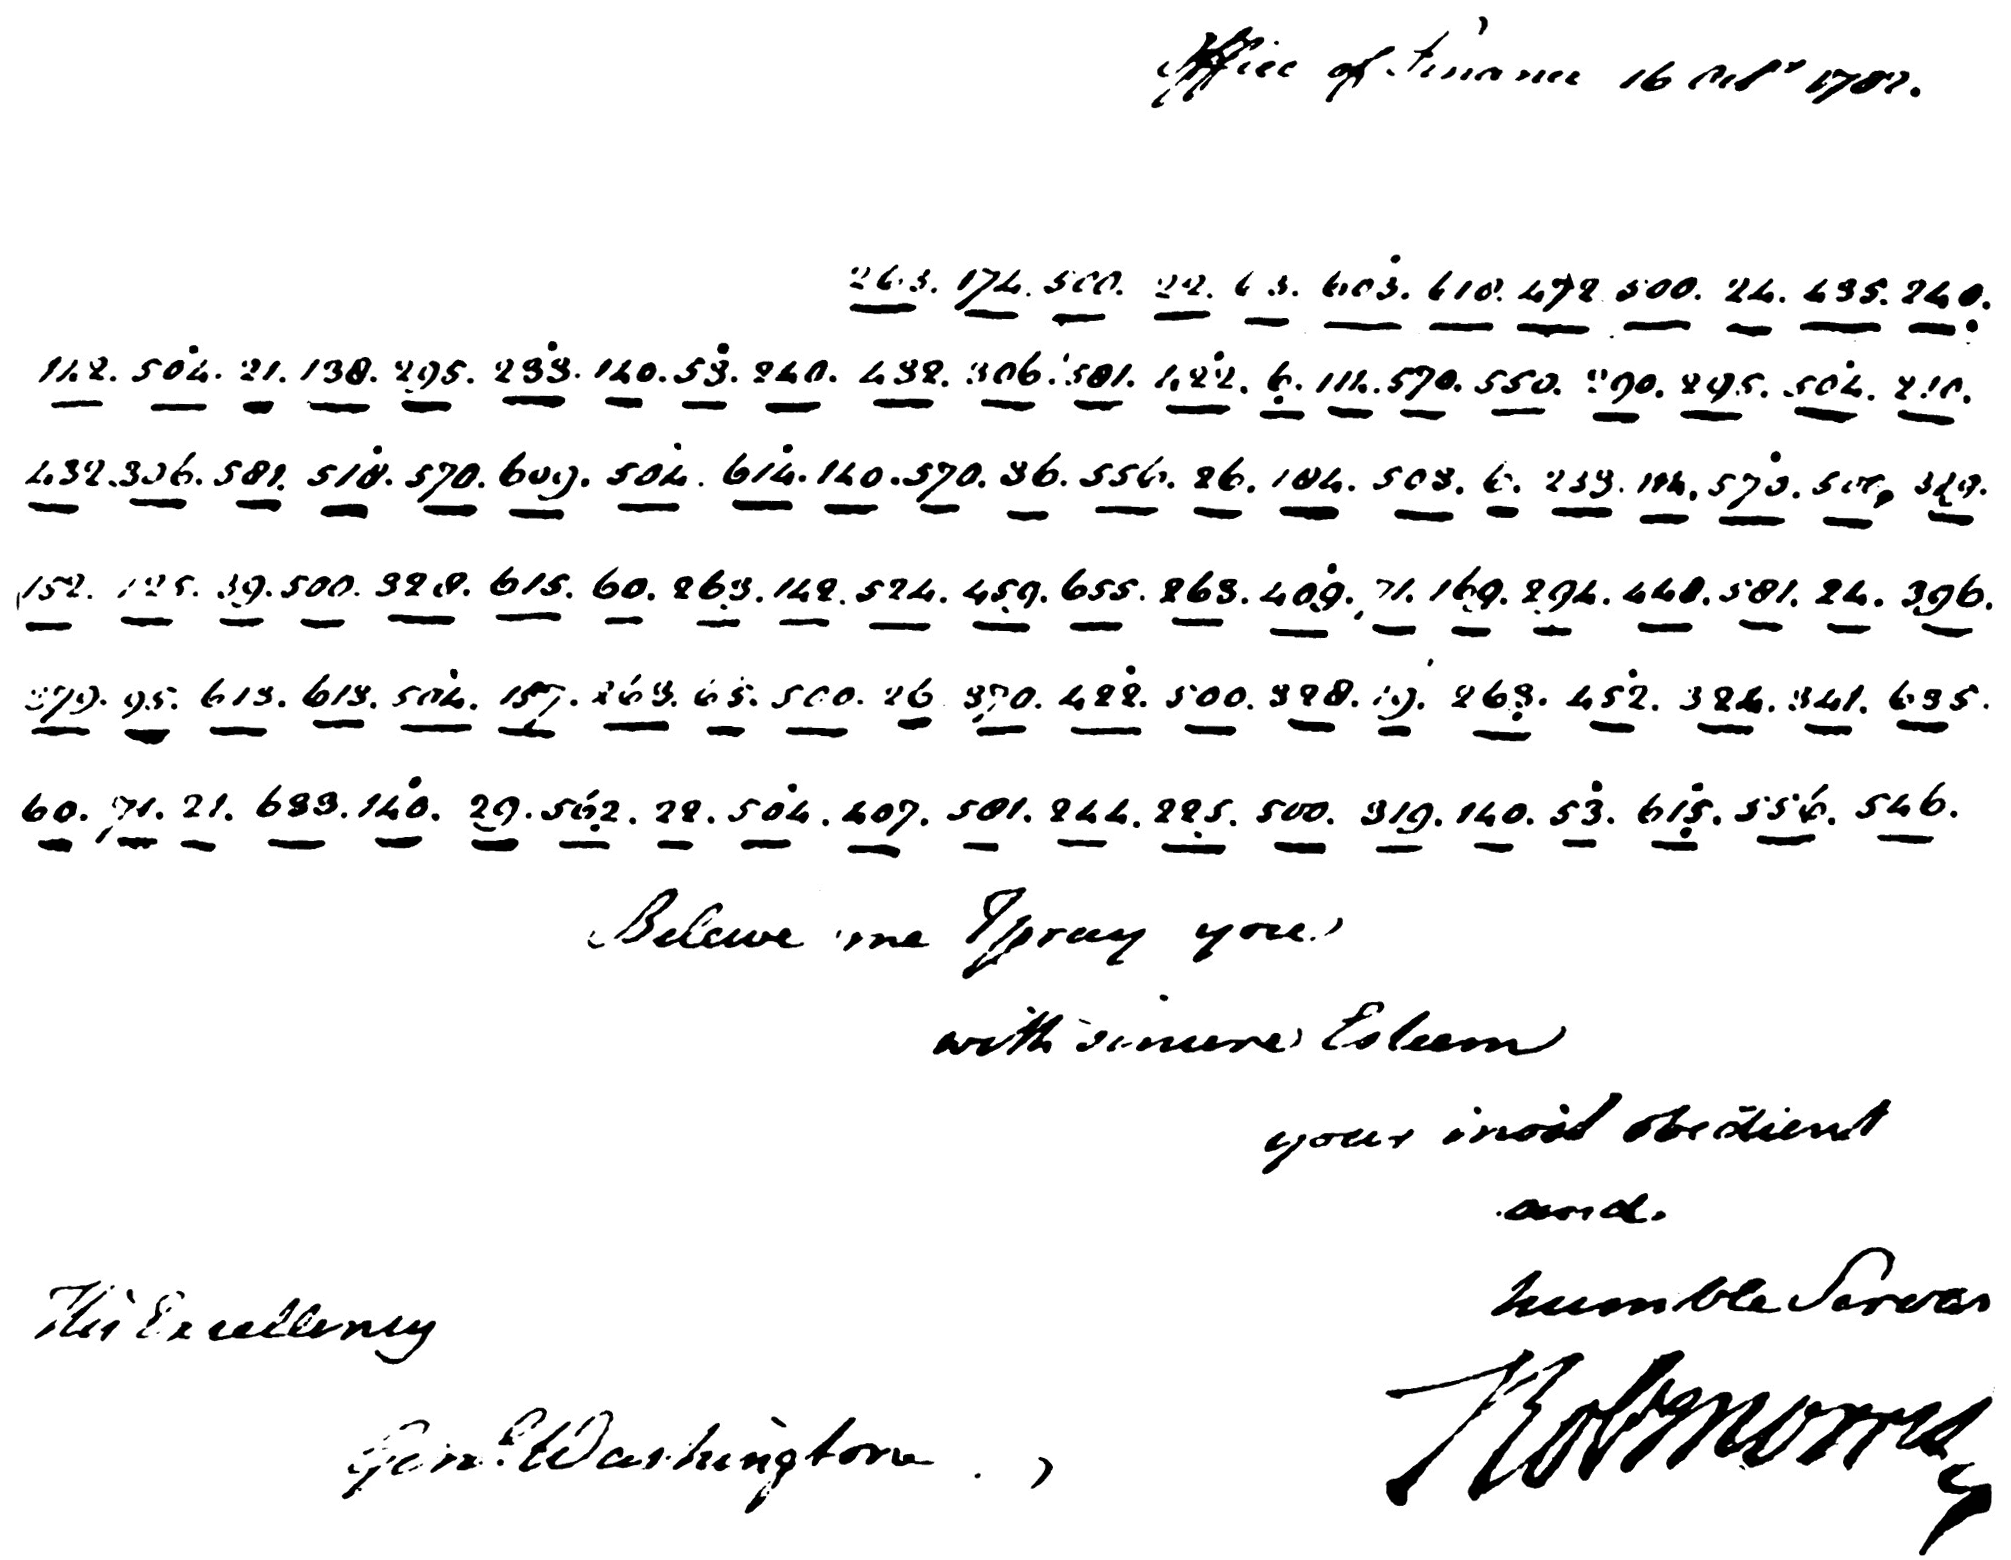 Office of Finance 16 Octr 1782.
263. 174. 500. 22. 63. 603. 610. 472. 500. 24. 435. 240.
142. 504. 21. 138. 295. 233. 140. 53. 240. 432. 306. 581. 422. 6. 114. 570. 550. 290. 295. 504. 210.
432. 306. 581. 518. 570. 609. 504. 614. 140. 570. 36. 556. 26. 184. 503. 6. 233. 114. 573. 500. 329.
152. 125. 39. 500. 328. 615. 60. 263. 142. 524. 459. 655. 263. 409. 71. 169. 294. 448. 581. 24. 396.
379. 95. 613. 613. 504. 157. 263. 65. 500. 26. 370. 422. 500. 328. 19. 263. 452. 324. 341. 635.
60. 71. 21. 633. 140. 29. 562. 22. 504. 407. 581. 244. 225. 500. 319. 140. 53. 615. 556. 546.
Beleive me I pray you
with sincere Esteem
your most obedient
and
humble Servan
His Excellency
Robt Morris
Genl. Washington